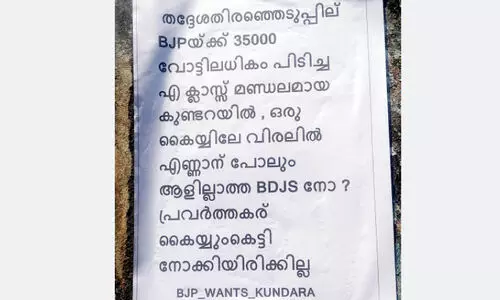 തദ്ദേശതിരഞ്ഞെടുപ്പില്
BJPയ്ക്ക് 35000
വോട്ടിലധികം പിടിച്ച
എ ക്ലാസ്സ് മണ്ഡലമായ
കുണ്ടറയിൽ , ഒരു
കൈയ്യിലേ വിരലിൽ
എണ്ണാന് പോലും
ആളില്ലാത്ത BDJS നോ ?
പ്രവർത്തകര്
കൈയ്യുംകെട്ടി
നോക്കിയിരിക്കില്ല
BJP_WANTS_KUNDARA